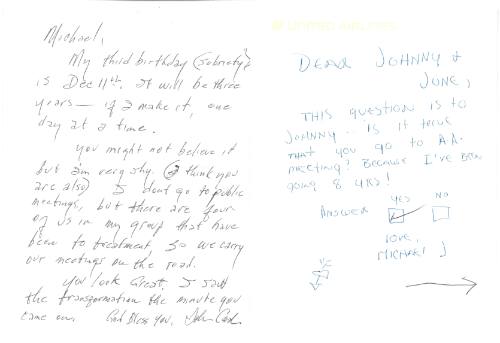 Michael,
My third birthday (sobriety)
is Dec 11th. It will be three
years — if I make it, one
day at a time.
You might not believe it
but I'm very shy. (I think you
are also) I dont go to public
meetings, but there are four
of us in my group that have
been to treatment so we carry
our meetings on the road.
You look Great. I saw
the transformation the minute you
came on. God Bless You, John Cash
UNITED AIRLINES
DEAR JOHNNY &
JUNE,
THIS QUESTION IS TO
JOHNNY... IS IT TRUE
THAT YOU GO TO A.A.
MEETING? BECAUSE I'VE BEEN
GOING 8 YRS!
ANSWER YES NO
LOVE,
MICHAEL J